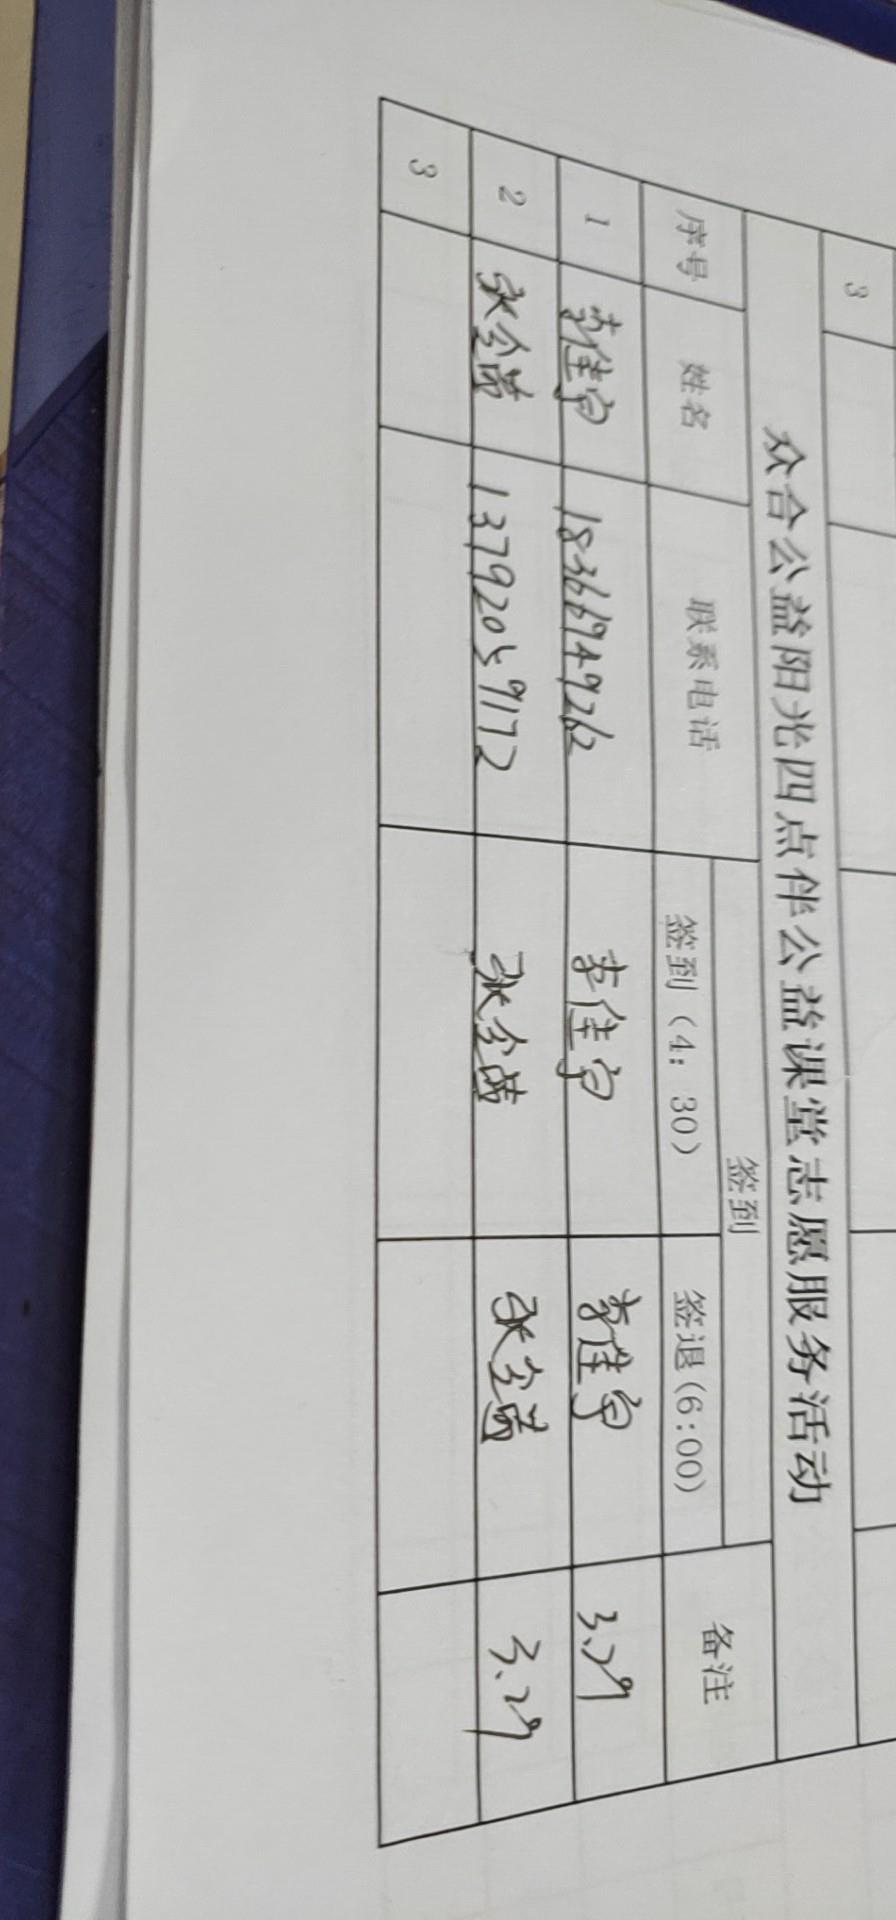 3
众合公益阳光四点伴公益课堂志愿服务活动
序号 姓名 联系电话 签到 备注
签到（4：30） 签退(6:00)
1 佳宁 18366949262 佳宁 佳宁 3.29
2 张会茵 13792059172 张会茵 张会茵 3.29
3